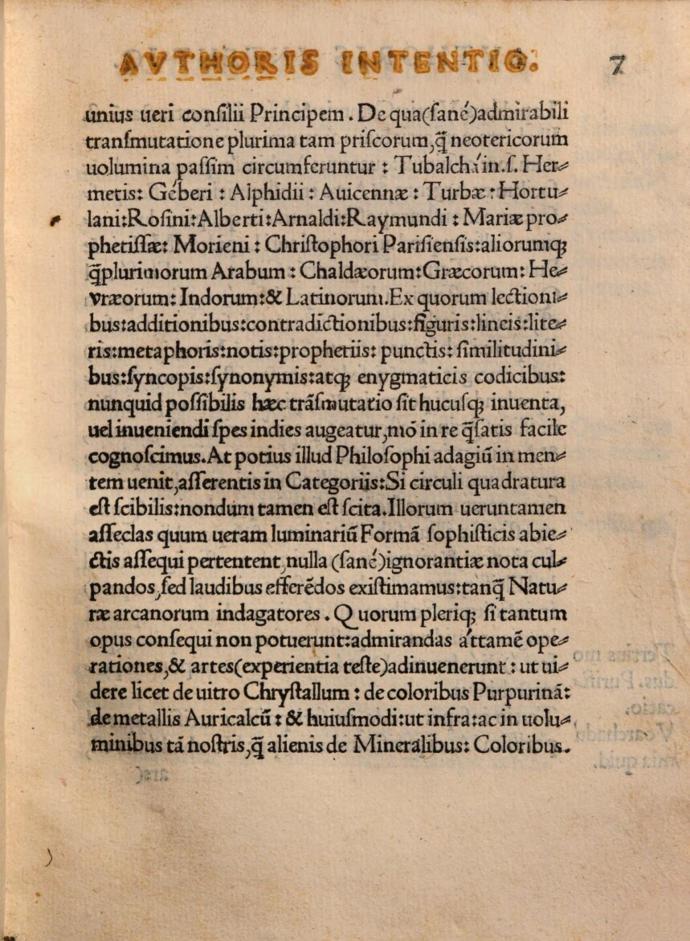 AVTHORIS INTENTIO. 7
unius ueri conſilii Principem . De qua(ſané)admirabili
tranſmutatione plurima tam priſcorum,q̃ neotericorum
uolumina paſſim circumferuntur : Tubalcháin.ſ. Her⸗
metis: Géberi : Alphidii : Auicennæ : Turbæ : Hortu⸗
lani:Roſini:Alberti:Arnaldi:Raymundi : Mariæ pro⸗
phetiſſæ: Morieni : Chriſtophori Pariſienſis:aliorumq;
q̃plurimorum Arabum : Chaldæorum:Græcorum: He⸗
vræorum: Indorum:& Latinorum.Ex quorum lectioni⸗
bus:additionibus:contradictionibus:figuris:lineis:lite⸗
ris:metaphoris:notis:prophetiis: punctis: ſimilitudini⸗
bus:ſyncopis:ſynonymis:atq; enygmaticis codicibus:
nunquid poſſibilis hæc trãſmutatio ſit hucuſq; inuenta,
uel inueniendi ſpes indies augeatur,mõ in re q̃ſatis facile
cognoſcimus.At potius illud Philoſophi adagiũ in men⸗
tem uenit,aſſerentis in Categoriis:Si circuli quadratura
eſt ſcibilis:nondum tamen eſt ſcita.Illorum ueruntamen
aſſeclas quum ueram luminariũ Formã ſophiſticis abie⸗
ctis aſſequi pertentent,nulla (ſané)ignorantiæ nota cul⸗
pandos,ſed laudibus efferẽdos exiſtimamus:tanq̃ Natu⸗
ræ arcanorum indagatores . Quorum pleriq; ſi tantum
opus conſequi non potuerunt:admirandas áttamẽ ope⸗
rationes,& artes(experientia teſte)adinuenerunt : ut ui⸗
dere licet de uitro Chryſtallum : de coloribus Purpurinã:
de metallis Auricalcũ : & huiuſmodi:ut infra:ac in uolu⸗
minibus tã noſtris,q̃ alienis de Mineralibus: Coloribus.